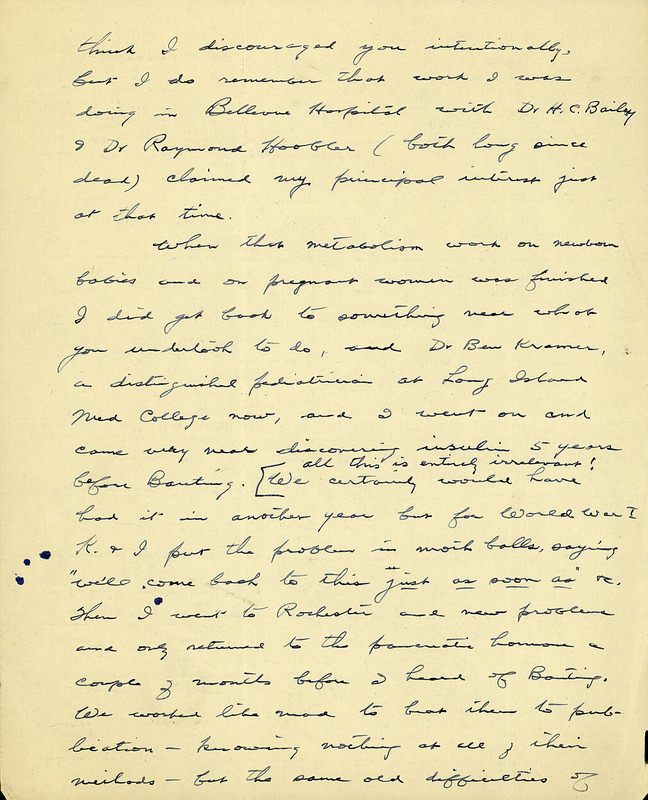 think I discouraged you intentionally,
but I do remember that work I was
doing in Bellevue Hospital with Dr H. C. Bailey
& Dr Raymond Hoobler (both long since
dead) claimed my principal interest just
at that time.
When that metabolism work on newborn
babies and on pregnant women was finished
I did get back to something near what
you undertook to do, and Dr Ben Kramer,
a distinguished pediatrician at Long Island
Med College now, and I went on and
came very near discovering insulin 5 years
all this is entirely irrelevant!
before Banting. [We certainly would have
had it in another year but for World War I
K. & I put the problem in moth balls, saying
"we'll come back to this "just as soon as" &c.
Then I went to Rochester and new problems
and only returned to the pancreatic hormone a
couple of months before I heard of Banting.
We worked like mad to beat them to pub-
lication – knowing nothing at all of their
methods – but the same old difficulties of